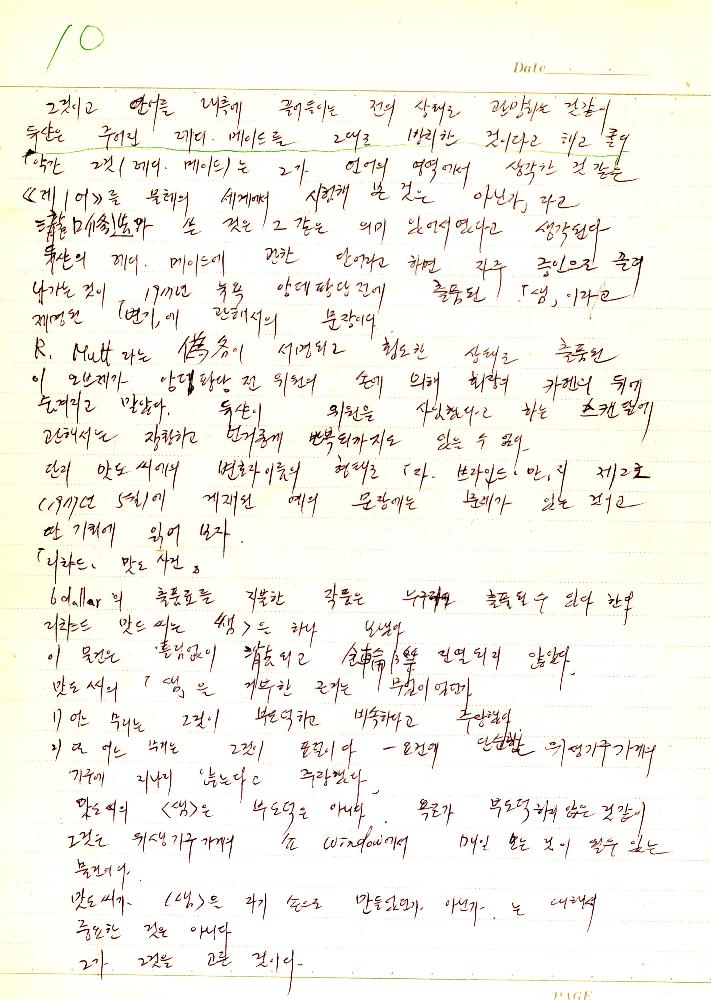 10
Date
그것이고 언어를 내측에 끌어들이는 전의 상태로 관망하는 것같이
듀산은 주어진 레디·메이드를 그대로 방치한 것이다고 해고 좋다
약간 그것(레디·메이드)는 그가 언어의 영역에서 생각한 것 같은
《레 | 어》를 물체의 세계에서 시험해 본 것은 아닌가, 라고
쓴 것은 그 같은 의미 있어서였다고 생각된다
듀산의 레디·메이드에 관한 단어라고 하면 자주 증인으로 끌려
나가는 것이 1917년 뉴욕 앙데팡당전에 출품된 「샘」이라고
제명된 「변기」에 관해서의 문장이다
R. Mutt 라는 偽名이 서명되고 필요한 상태로 출품된
이 오브제가 앙데팡당 전 위원의 손에 의해 회장의 카텐의 뒤에
숨겨지고 말았다. 듀산이 위원을 사임했다고 하는 스캔들에
관해서는 장황하고 번거롭게 반복되까지도 있을 수 없다
단지 맷도 씨에의 변호라 이름의 형태로 「더·브라인드·만」의 제2호
(1917년 5월)에 게재된 예의 문장에는 본래가 있는 것이고
딴 기회에 읽어 보자.
「리챠드·맷도 사건」
6 dollar의 출품료를 지불한 작품은 누구라도 출품될 수 있다 한다
리챠드 맷드 씨는 <샘>은 하나 보냈다
이 물건은 틀림없이 消失되고 전열되지 않았다.
맷도 씨의 「샘」을 거부한 근거는 무엇이었던가
1) 어느 무리는 그것이 부도덕하고 비속하다고 주장했다
2) 또 어느 무리는 그것이 표절이다 — 요건에 단순한 위생기구 가게의
기구에 지나지 않는다고 주장했다.
맷도 씨의 <샘>은 부도덕은 아니다. 욕조가 부도덕하지 않은 것같이
그것은 위생기구 가게의 쇼 window에서 매일 보는 것이 될수 있는
물건이다.
맷도 씨가 <샘>을 자기 손으로 만들었던가 아닌가 는 대해서
중요한 것은 아니다
그가 그것을 고른 것이다.
PAGE